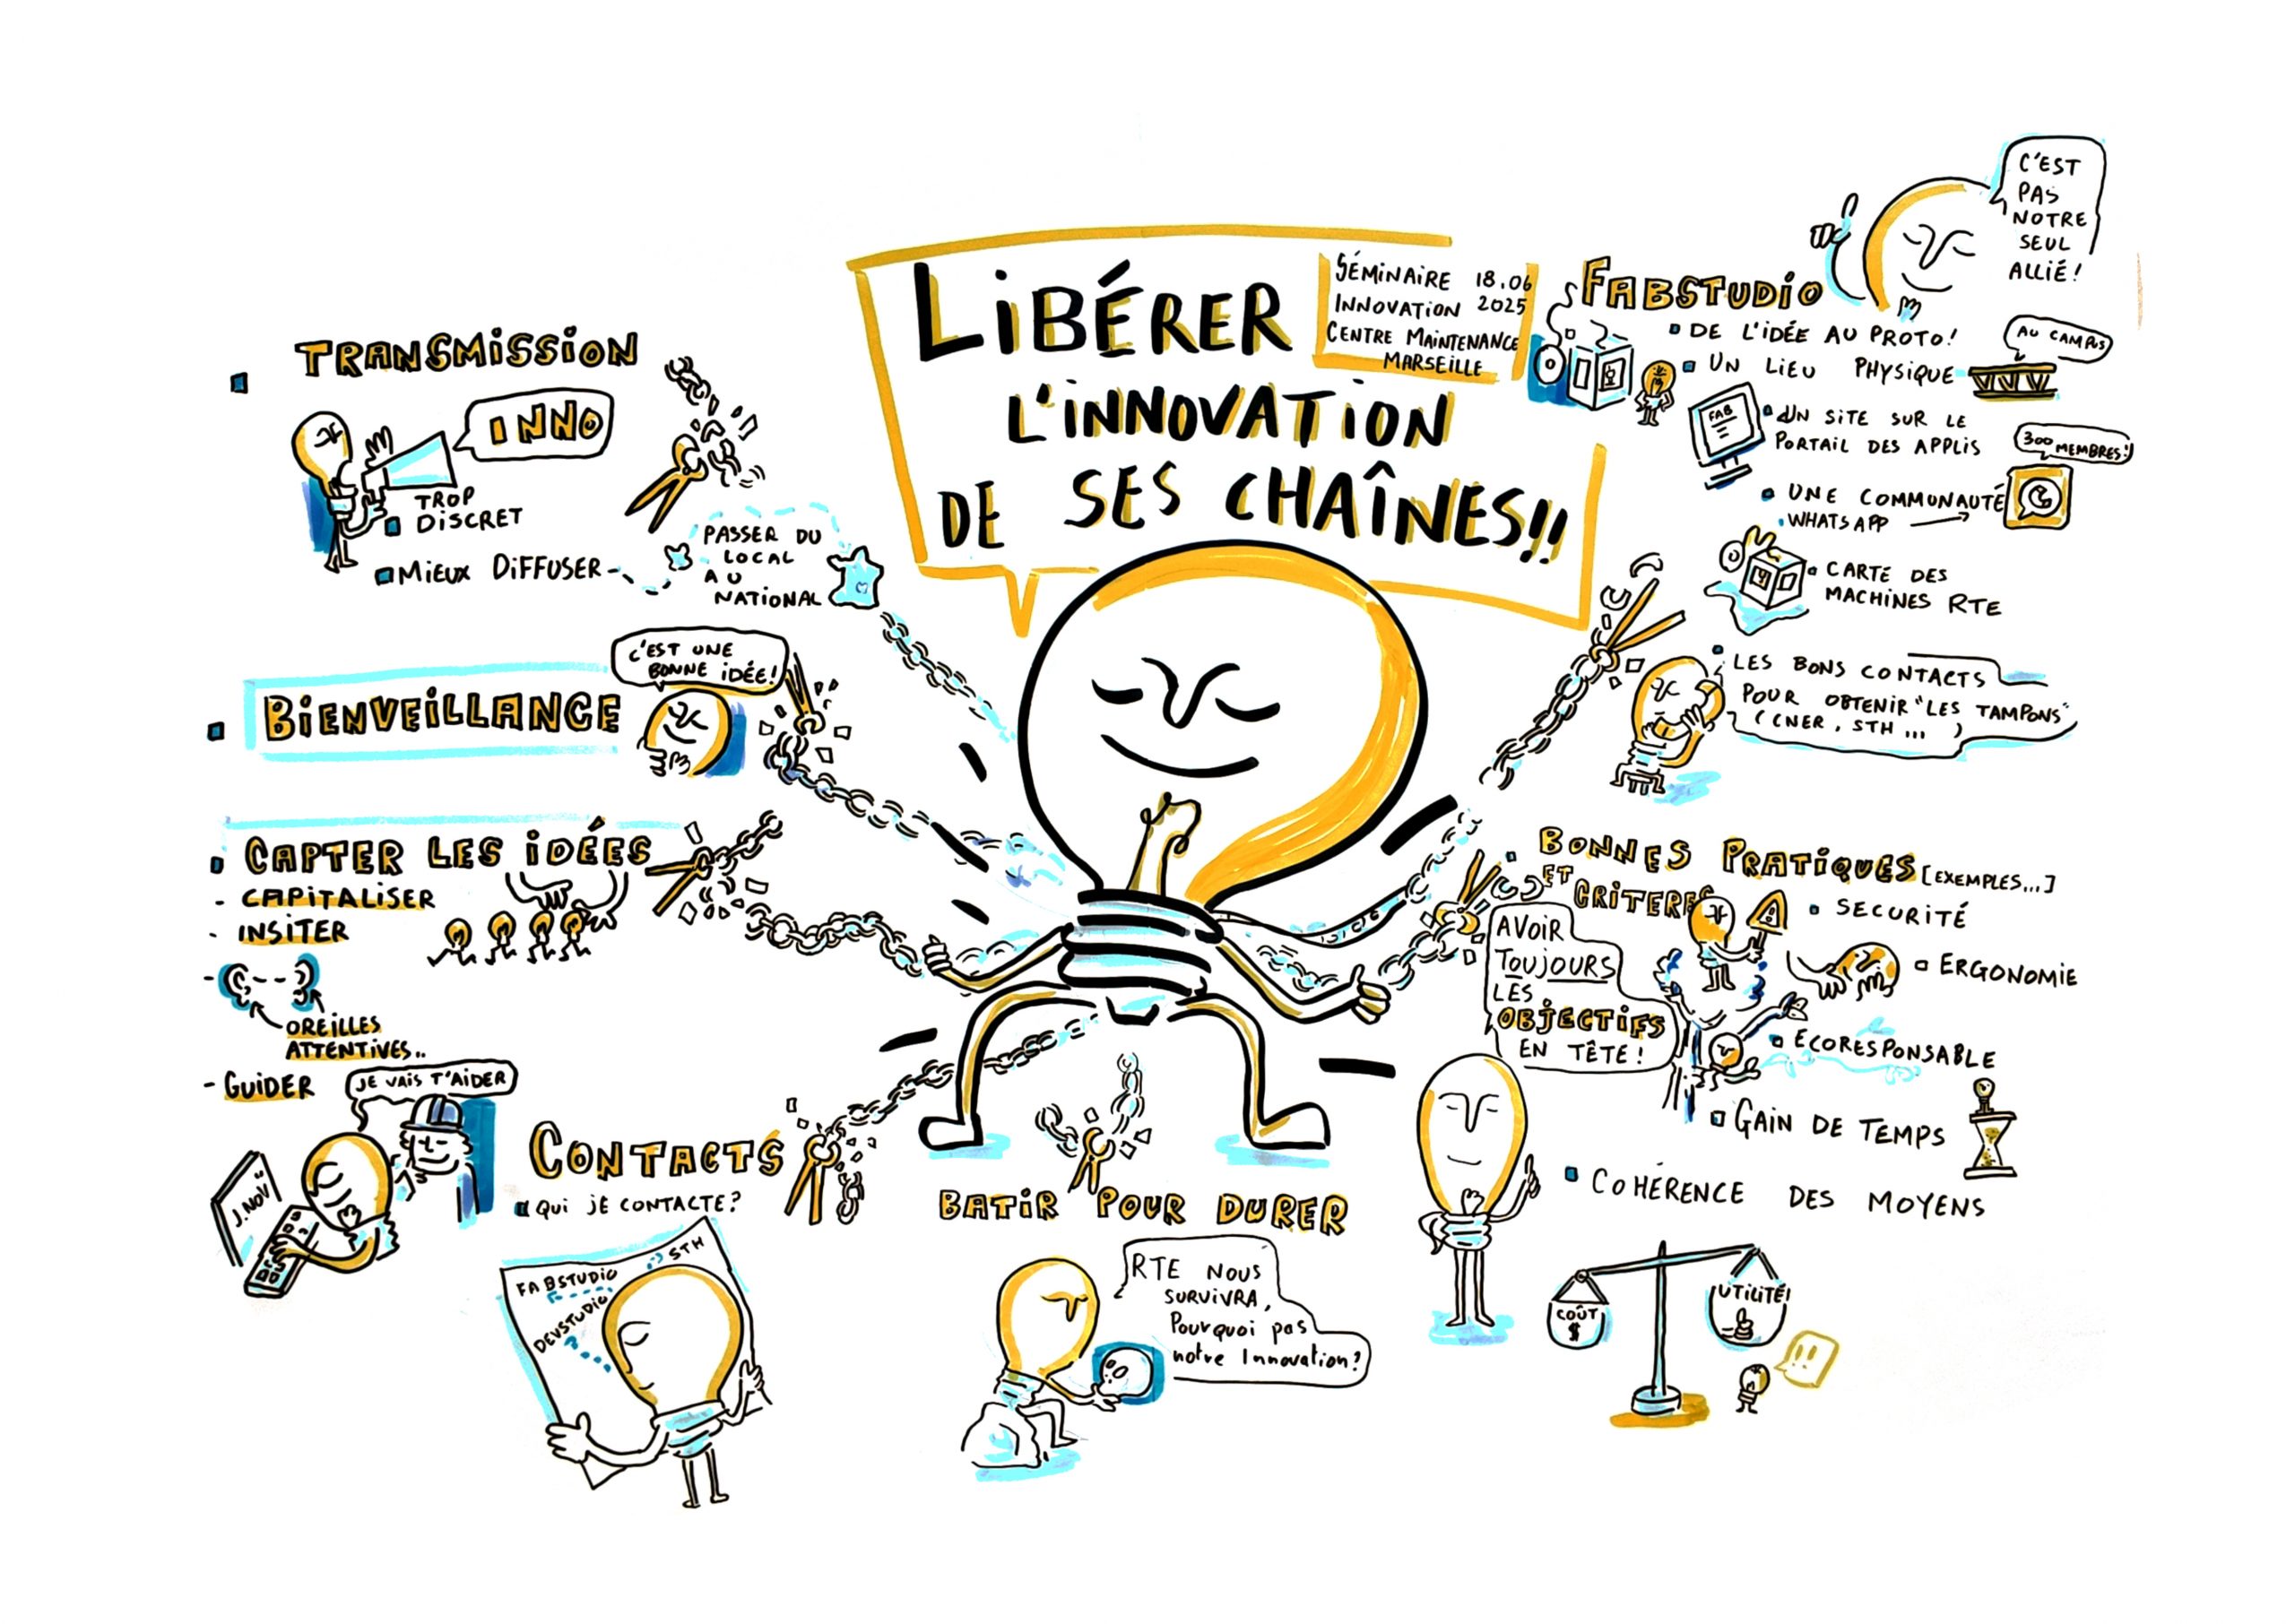 LiBÉRER
L'iNNOVATiON
DE SES CHAÎNES!!
SÉMiNAiRE 18.06
INNOVATION 2025
CENTRE MAINTENANCE
MARSEILLE
TRANSMiSSiON
INNO
TROP
DISCRET
MiEUX DiFFUSER
PASSER DU
LOCAL
AU
NATIONAL
BiENVEiLLANCE
C'EST UNE
BONNE iDÉE!
CAPTER LES iDÉES
- CAPiTALiSER
- INSiTER
- OREiLLES
ATTENTiVES..
- GUiDER
JE VAiS T'AiDER
J.NOV"
CONTACTS
QUi JE CONTACTE?
FABSTUDiO
STH
DEVSTUDiO
BATiR POUR DURER
RTE NOUS
SURViVRA,
Pourquoi pas
notre Innovation?
FABSTUDiO
C'EST
PAS
NOTRE
SEUL
ALLIÉ!
DE L'IDÉE AU PROTO!
UN LiEU PHYSiQUE
AU CAMPUS
FAB
UN SiTE SUR LE
PORTAiL DES APPLiS
300 MEMBRES!
UNE COMMUNAUTÉ
WHATSAPP
CARTE DES
MACHiNES RTE
LES BONS CONTACTS
POUR OBTENiR "LES TAMPONS"
(CNER, STH ... )
BONNES PRATiQUES [EXEMPLES...]
ET CRiTERES
AVOiR
TOUJOURS
LES
OBJECTiFS
EN TÊTE!
SECURiTÉ
ERGONOMiE
ECORESPONSABLE
GAiN DE TEMPS
COHÉRENCE DES MOYENS
COÛT
$
UTiLiTÉ!
!!